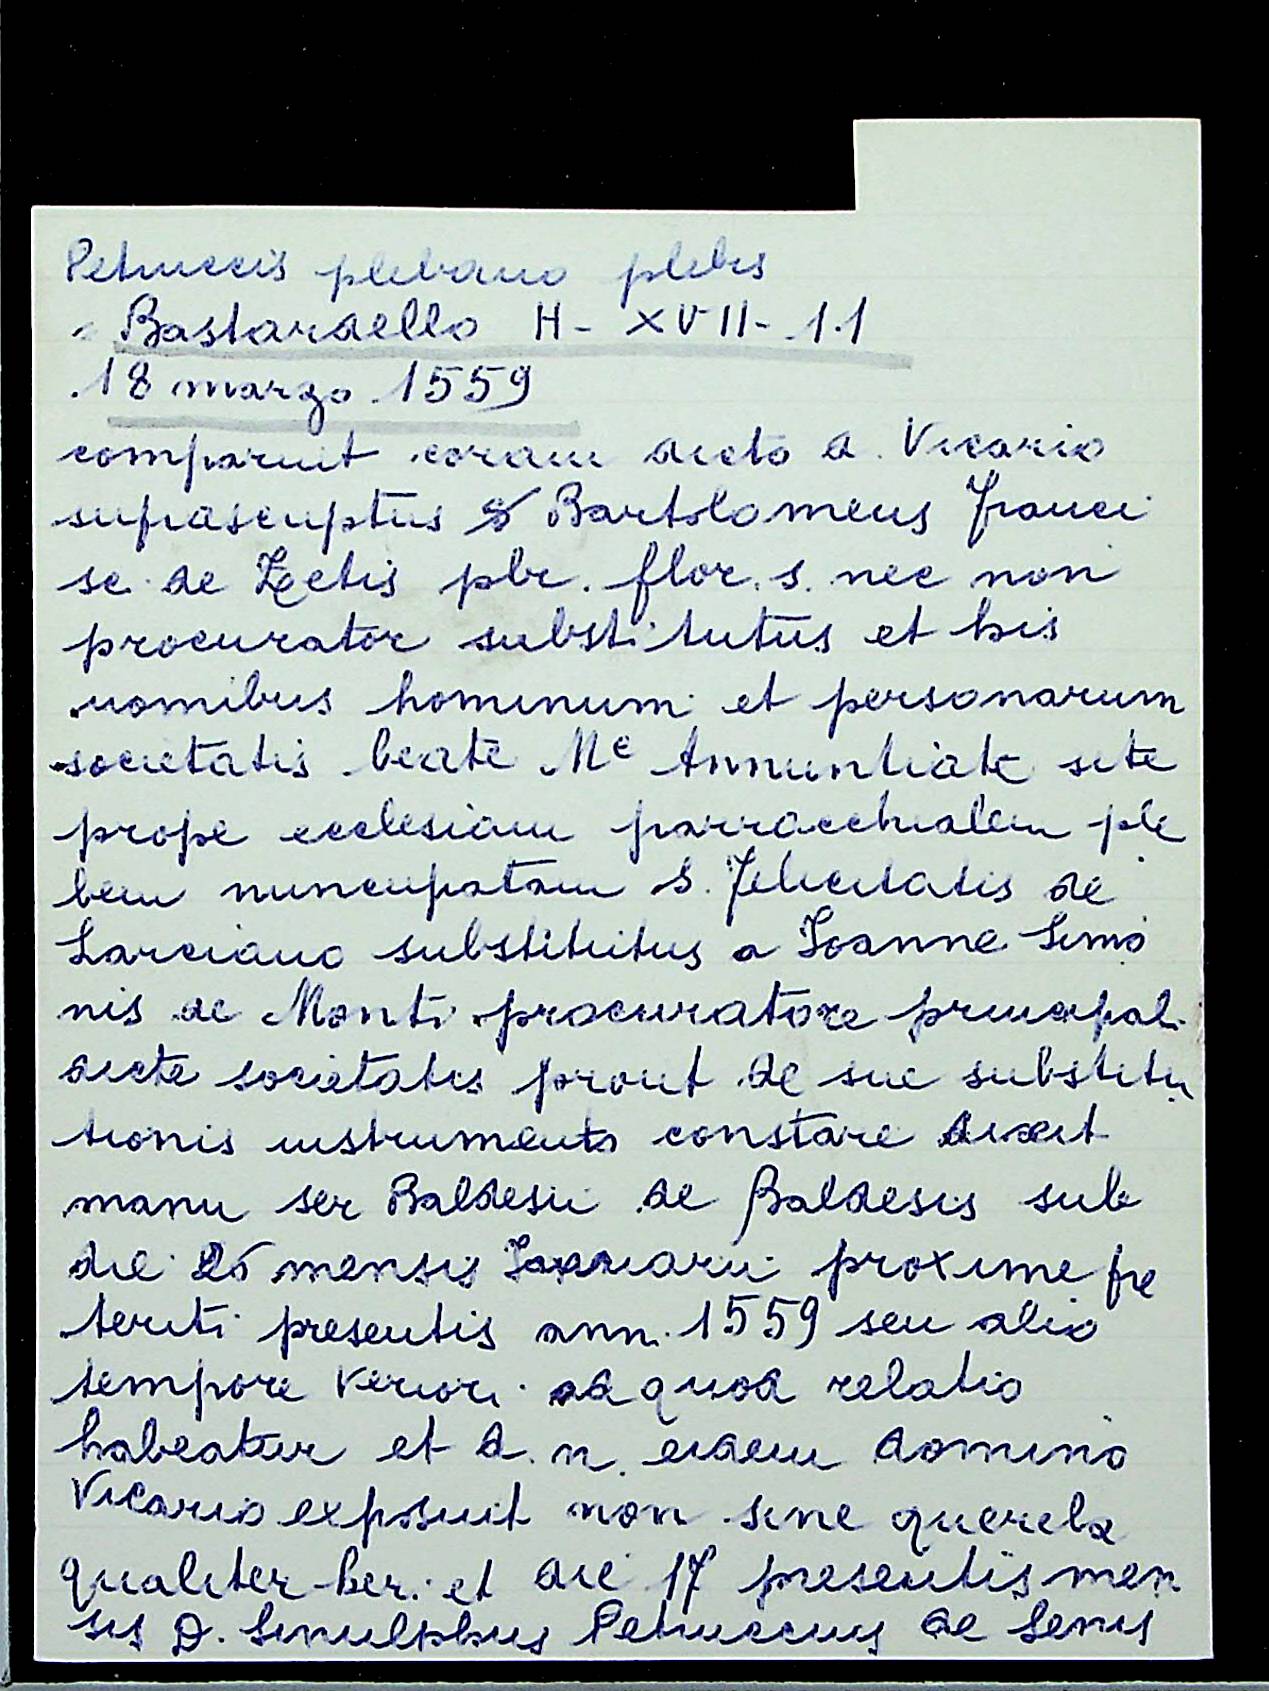 Petruccis plebano plebis
Bastardello H - XVII - 1.1
18 marzo 1559
comparuit coram dicto d. Vicario
suprascriptus S Bartolomeus Franci
sc. de Zectis pbr. flor. s. nec non
procurator substitutus et his
nomibus hominum et personarum
societatis beate Me Annuntiate site
prope ecclesiam parracchialem ple
bem nuncupatam S. Felicitatis de
Larciano substitutus a Joanne Simo
nis de Monti procuratore principali
dicte societatis prout de sue substitu
tionis instrumento constare dixit
manu ser Baldesii de Baldesis sub
die 26 mensis Januarii proxime pre
teriti presentis ann. 1559 seu alio
tempore veriori ad quod relatio
habeatur et d. n. eidem domino
Vicario exposuit non sine querela
qualiter her. et die 17 presentis men
sis D. Sinulphus Petruccius de Senis